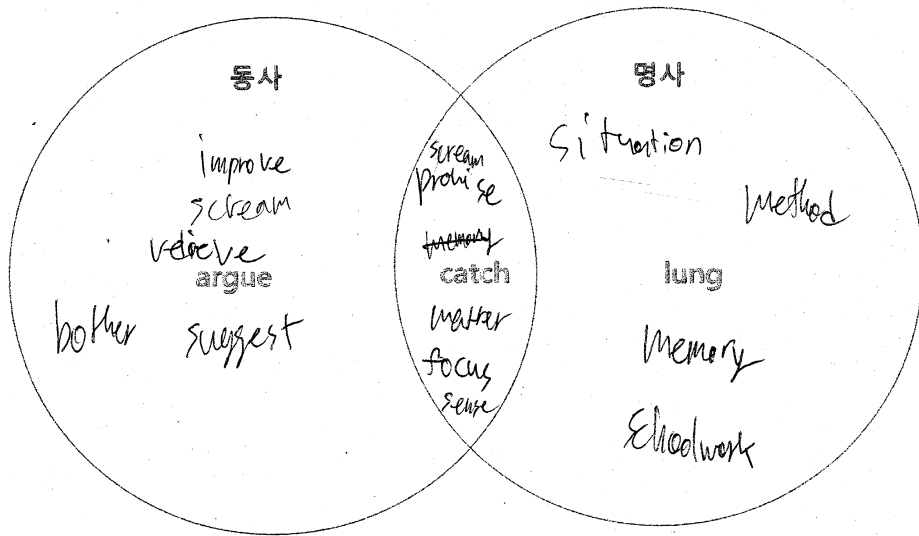 동사
명사
improve
scream
relieve
argue
bother
suggest
scream
promise
memory
catch
matter
focus
sense
situation
method
lung
memory